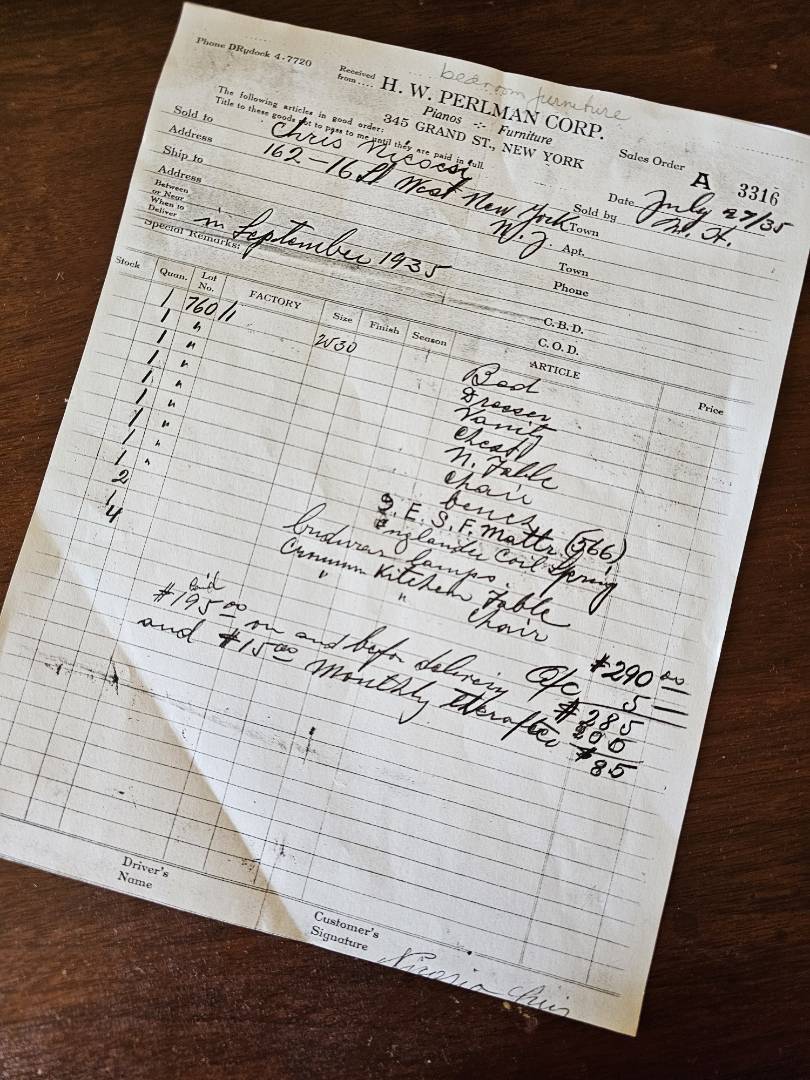 bedroom furniture
Phone DRydock 4-7720
Received from....
H. W. PERLMAN CORP.
Pianos -:- Furniture
345 GRAND ST., NEW YORK
The following articles in good order:
Title to these goods not to pass to me until they are paid in full.
Sales Order A 3316
Sold to Chris Nicocsy Date July 27/35
Address 162-16 St West New York Town Sold by M. H.
Ship to N. J. Apt.
Address Town
Between or Near Phone
When to Deliver in September 1935
Special Remarks: C. B. D.
C. O. D.
Stock Quan. Lot No. FACTORY Size Finish Season ARTICLE Price
1 760/1 Bed
1 " Dresser
1 " Vanity
1 " Chest
1 " N. Table
1 " Chair
1 " bench
1 S. F. Mattr. (566)
1 Englander Coil Spring
2 lamps.
1 Kitchen Table
4 " " Chair
$290 00
paid
$195 00 on and before delivery O/C 5
and $15 00 Monthly therafter $285
200
$85
Driver's Name
Customer's Signature